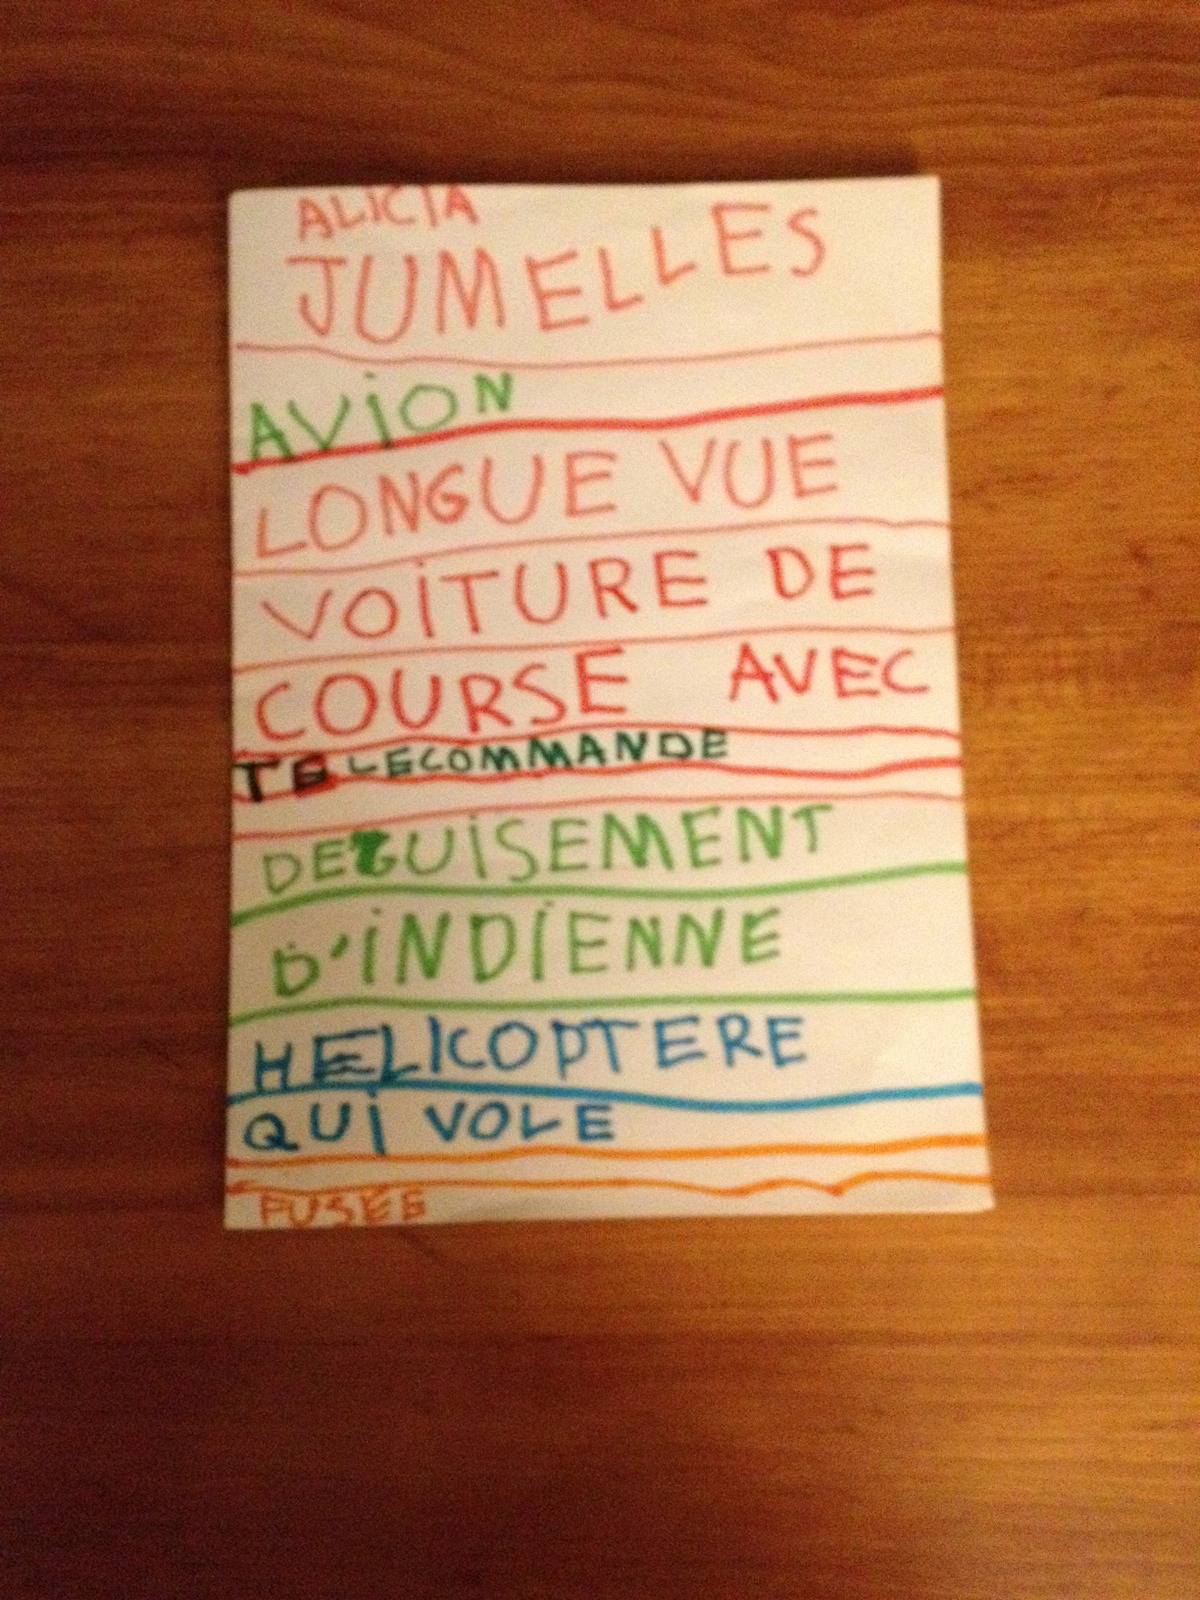 ALICIA
JUMELLES
AVION
LONGUE VUE
VOITURE DE
COURSE AVEC
TELECOMMANDE
DEGUISEMENT
D'INDIENNE
HELICOPTERE
QUI VOLE
FUSÉE